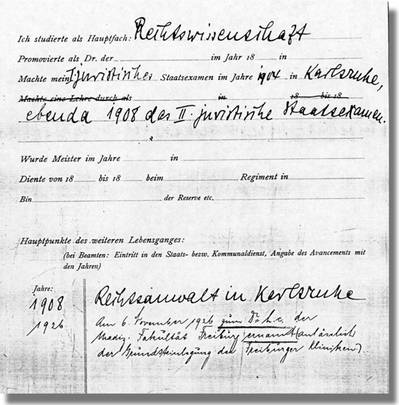 Ich studierte als Hauptfach: Rechtswissenschaft
Promovierte als Dr. der im Jahr 18 in
Machte mein juristisches Staatsexamen im Jahre 1904 in Karlsruhe,
Machte eine Lehre durch als in 18 bis 18
ebenda 1908 das II. juristische Staatsexamen.
Wurde Meister im Jahre in
Diente von 18 bis 18 beim Regiment in
Bin der Reserve etc.
Hauptpunkte des weiteren Lebensganges:
(bei Beamten: Eintritt in den Staats- bezw. Kommunaldienst, Angabe des Avancements mit
den Jahren)
Jahre:
1908 Rechtsanwalt in Karlsruhe
1926 Am 6. November 1926 zum Dr. h. c. der
Mediz. Fakultät Freiburg ernannt (anlässlich
der Grundsteinlegung der Freiburger Kliniken)